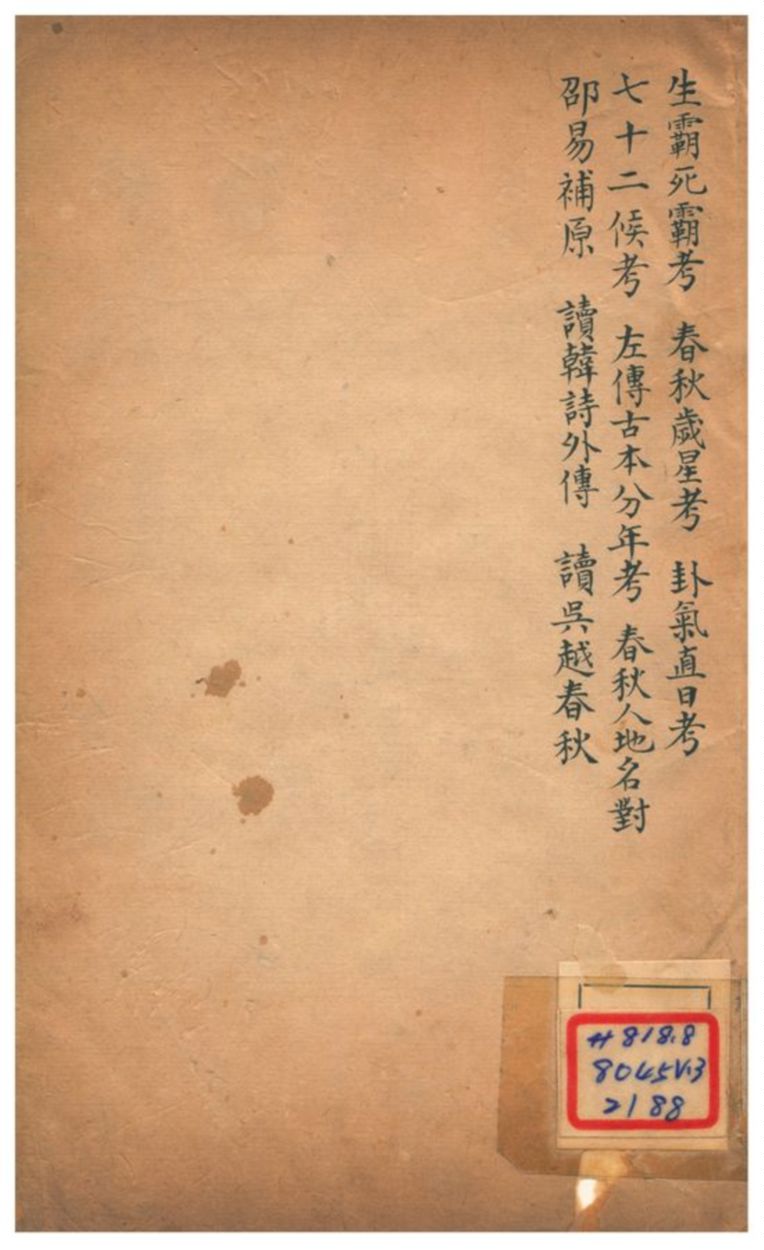 生霸死霸考　春秋歲星考　卦氣直日考
七十二候考　左傳古本分年考　春秋人地名對
邵易補原　讀韓詩外傳　讀吳越春秋
H 818.8
8045 V.3
2188